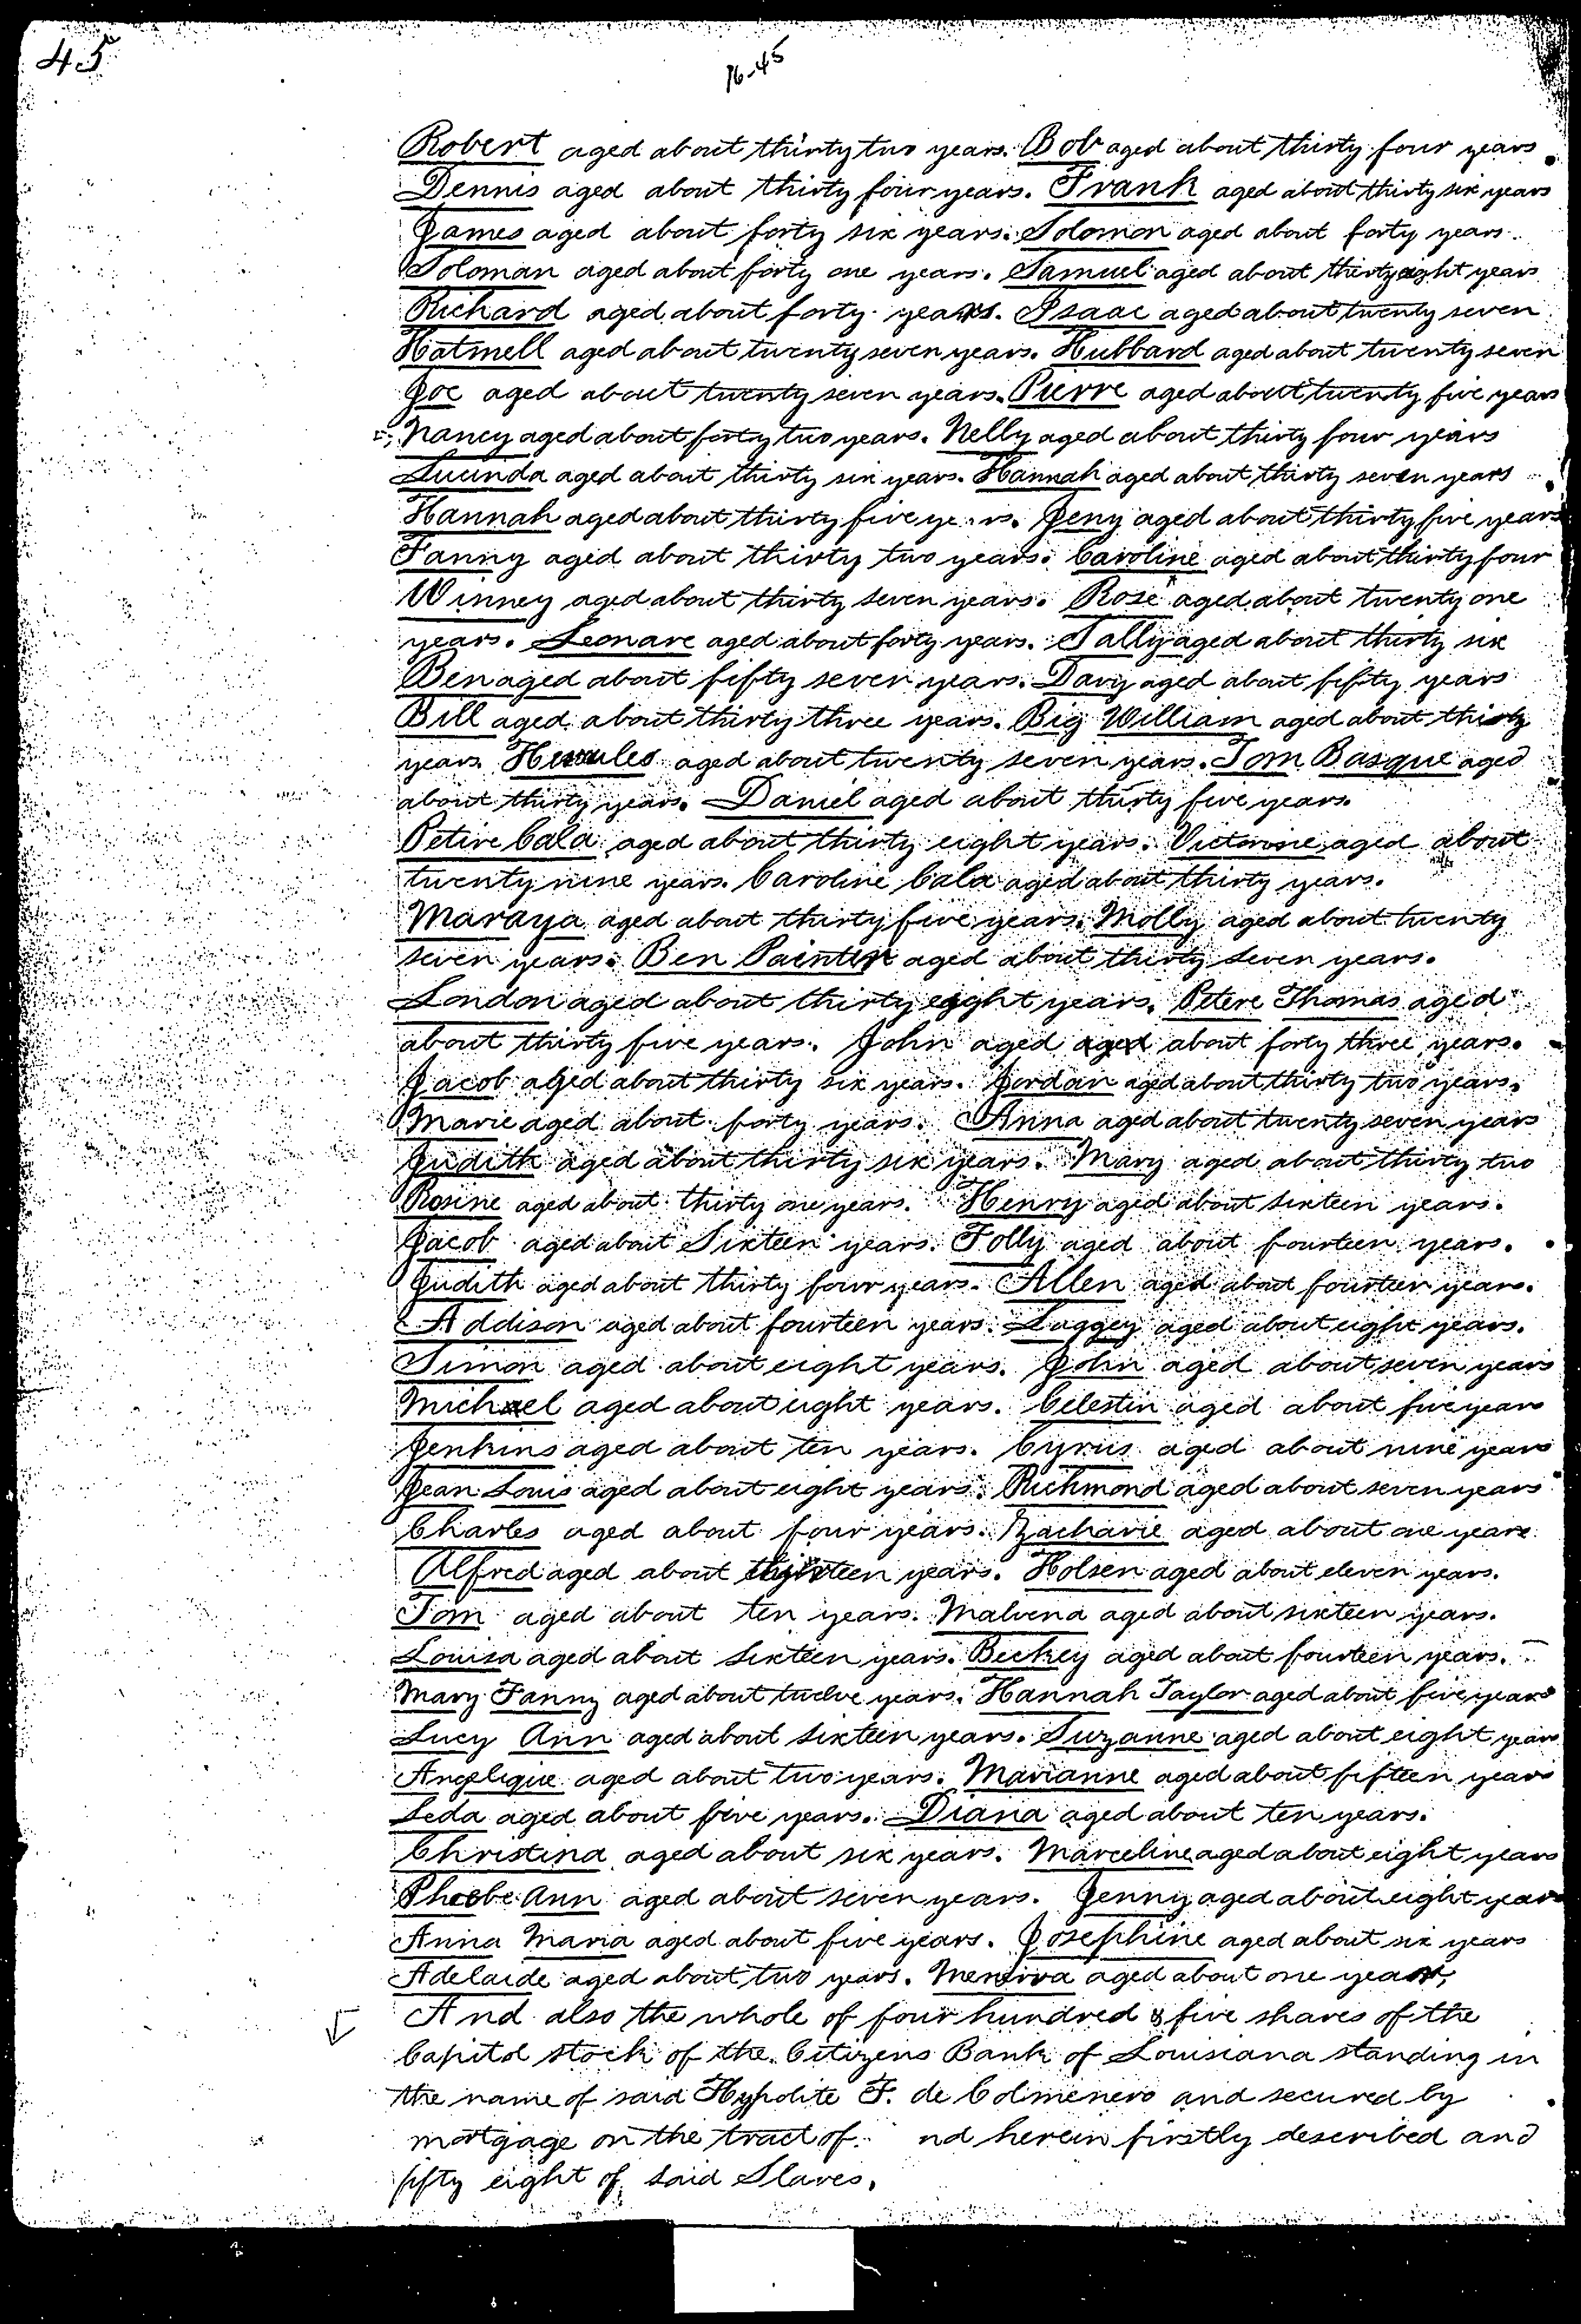 45
96-45
Robert aged about thirty two years. Bob aged about thirty four years.
Dennis aged about thirty four years. Frank aged about thirty six years
James aged about forty six years. Solomon aged about forty years.
Soloman aged about forty one years. Samuel aged about thirty eight years
Richard aged about forty years. Isaac aged about twenty seven
Hatmell aged about twenty seven years. Hubbard aged about twenty seven
Joe aged about twenty seven years. Pierre aged about twenty five years
Nancy aged about forty two years. Nelly aged about thirty four years
Lucinda aged about thirty six years. Hannah aged about thirty seven years
Hannah aged about thirty five ye rs. Jeny aged about thirty five years
Fanny aged about thirty two years. Caroline aged about thirty four
Winney aged about thirty seven years. Rose aged about twenty one
years. Leonare aged about forty years. Sally aged about thirty six
Ben aged about fifty seven years. Davy aged about fifty years
Bill aged about thirty three years. Big William aged about thirty
years. Hercules aged about twenty seven years. Tom Basque aged
about thirty years. Daniel aged about thirty five years.
Petire Cala aged about thirty eight years. Victorine aged about
twenty nine years. Caroline Cala aged about thirty years.
Maraya aged about thirty five years. Molly aged about twenty
seven years. Ben Painter aged about thirty seven years.
London aged about thirty eight years. Petere Thomas aged
about thirty five years. John aged aged about forty three years.
Jacob aged about thirty six years. Jordan aged about thirty two years.
Marie aged about forty years. Anna aged about twenty seven years
Judith aged about thirty six years. Mary aged about thirty two
Rosine aged about thirty one years. Henry aged about sixteen years.
Jacob aged about Sixteen years. Folly aged about fourteen years.
Judith aged about thirty four years. Allen aged about fourteen years.
Addison aged about fourteen years. Luggey aged about eight years.
Simon aged about eight years. John aged about seven years
Michael aged about eight years. Celestin aged about five years
Jenkins aged about ten years. Cyrus aged about nine years
Jean Louis aged about eight years. Richmond aged about seven years
Charles aged about four years. Zacharie aged about one years
Alfred aged about thirteen years. Holsen aged about eleven years.
Tom aged about ten years. Malvena aged about sixteen years.
Louisa aged about sixteen years. Beckey aged about fourteen years.
Mary Fanny aged about twelve years. Hannah Taylor aged about five years
Lucy Ann aged about sixteen years. Suzanne aged about eight years
Angelique aged about two years. Marianne aged about fifteen years
Leda aged about five years. Diana aged about ten years.
Christina aged about six years. Marceline aged about eight years
Phoebe Ann aged about seven years. Jenny aged about eight years
Anna Maria aged about five years. Josephine aged about six years
Adelaide aged about two years. Menerva aged about one year,
And also the whole of four hundred & five shares of the
Capitol stock of the Citizens Bank of Louisiana standing in
the name of said Hypolite F. de Colmenero and secured by
mortgage on the tract of nd herein firstly described and
fifty eight of said Slaves.